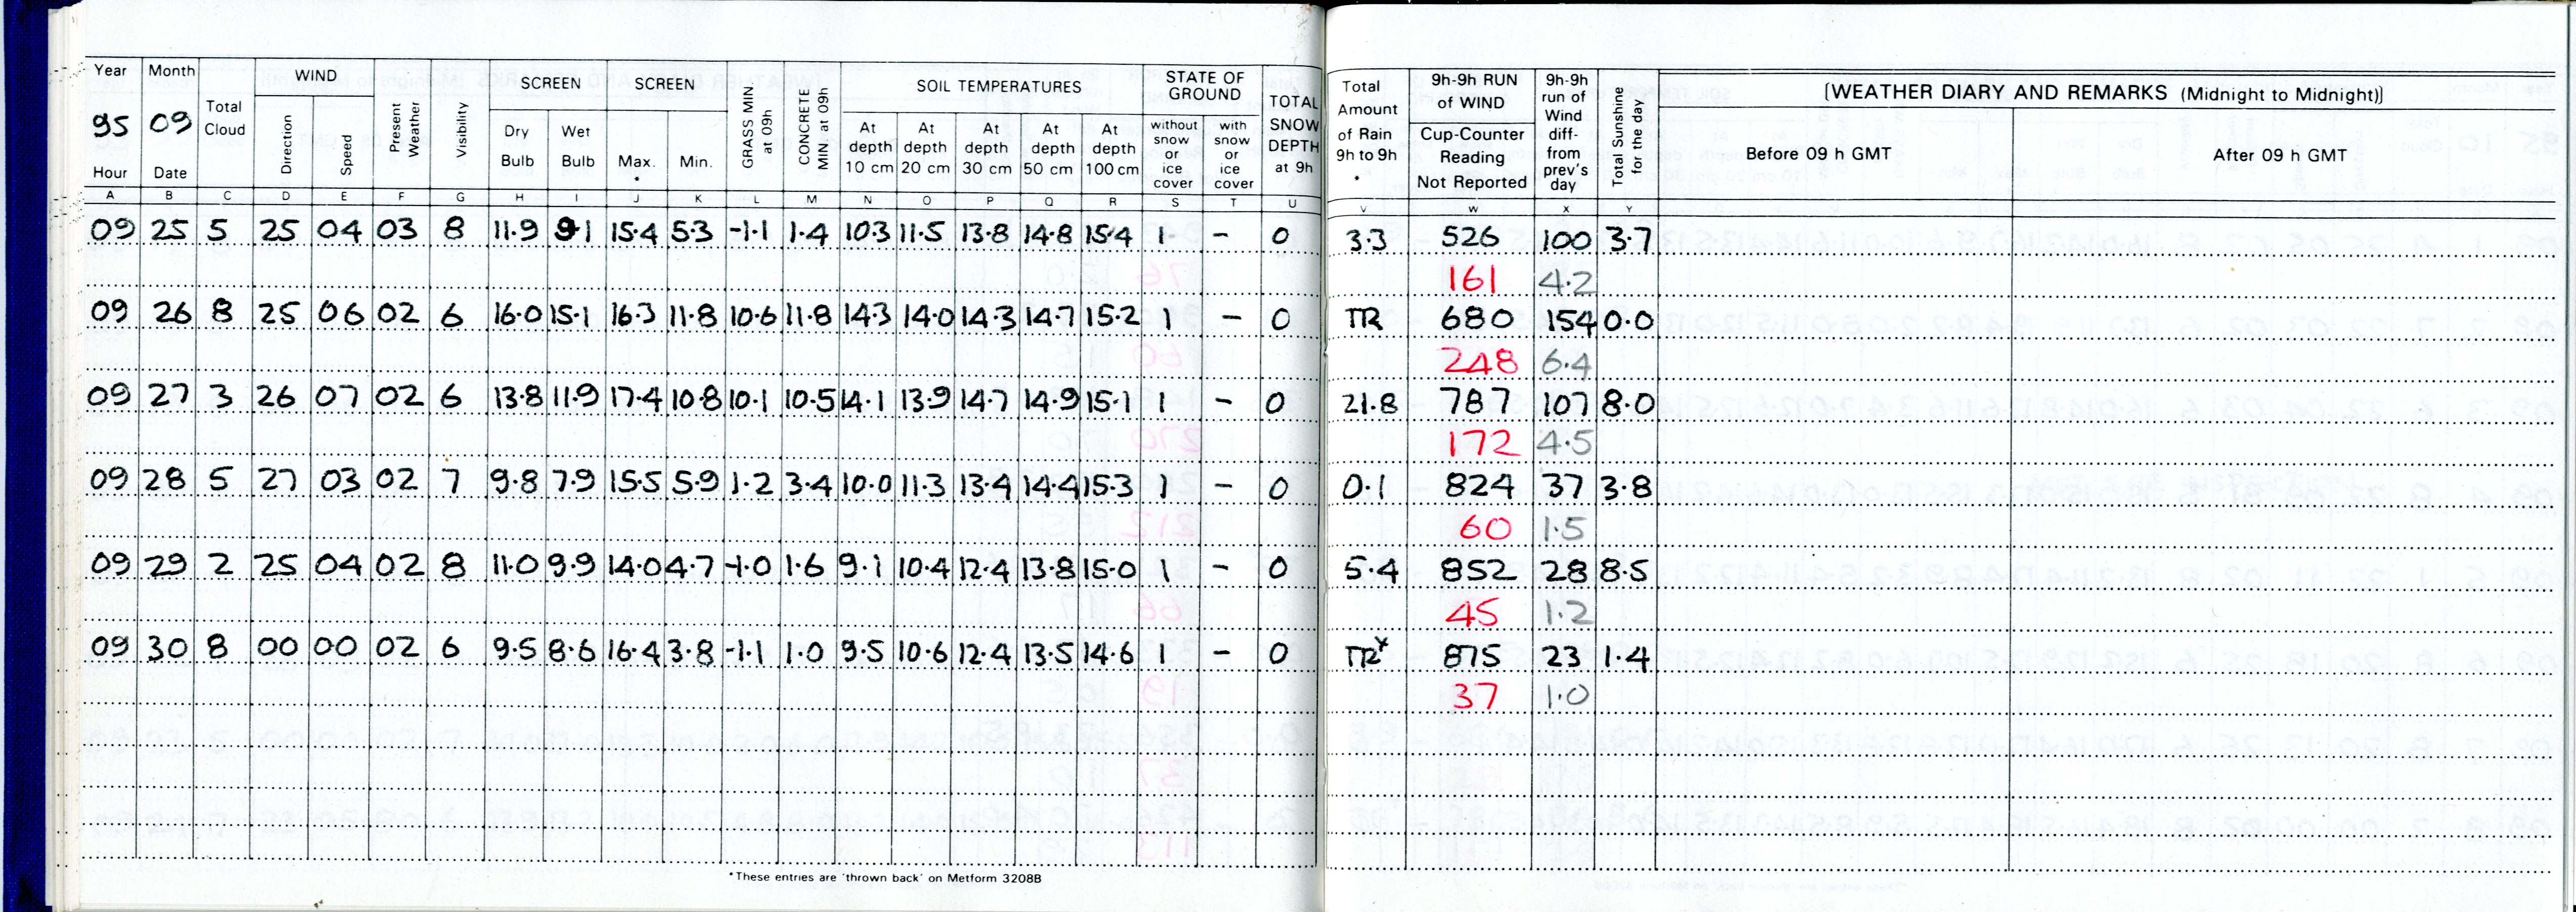 Year Month Total Cloud WIND Present Weather Visibility SCREEN SCREEN GRASS MIN. at 09h CONCRETE MIN. at 09h SOIL TEMPERATURES STATE OF GROUND TOTAL SNOW DEPTH at 9h Total Amount of Rain 9h to 9h * 9h-9h RUN of WIND 9h-9h run of Wind diff- from prev's day Total Sunshine for the day [WEATHER DIARY AND REMARKS (Midnight to Midnight)]
95 09 Direction Speed Dry Bulb Wet Bulb Max. * Min. At depth 10 cm At depth 20 cm At depth 30 cm At depth 50 cm At depth 100 cm without snow or ice cover with snow or ice cover Cup-Counter Reading Not Reported Before 09 h GMT After 09 h GMT
Hour Date
A B C D E F G H I J K L M N O P Q R S T U V W X Y
09 25 5 25 04 03 8 11.9 9.1 15.4 5.3 -1.1 1.4 10.3 11.5 13.8 14.8 15.4 1 - 0 3.3 526 100 3.7
161 4.2
09 26 8 25 06 02 6 16.0 15.1 16.3 11.8 10.6 11.8 14.3 14.0 14.3 14.7 15.2 1 - 0 TR 680 154 0.0
248 6.4
09 27 3 26 07 02 6 13.8 11.9 17.4 10.8 10.1 10.5 14.1 13.9 14.7 14.9 15.1 1 - 0 21.8 787 107 8.0
172 4.5
09 28 5 27 03 02 7 9.8 7.9 15.5 5.9 1.2 3.4 10.0 11.3 13.4 14.4 15.3 1 - 0 0.1 824 37 3.8
60 1.5
09 29 2 25 04 02 8 11.0 9.9 14.0 4.7 -1.0 1.6 9.1 10.4 12.4 13.8 15.0 1 - 0 5.4 852 28 8.5
45 1.2
09 30 8 00 00 02 6 9.5 8.6 16.4 3.8 -1.1 1.0 9.5 10.6 12.4 13.5 14.6 1 - 0 TR* 875 23 1.4
37 1.0
*These entries are 'thrown back' on Metform 3208B